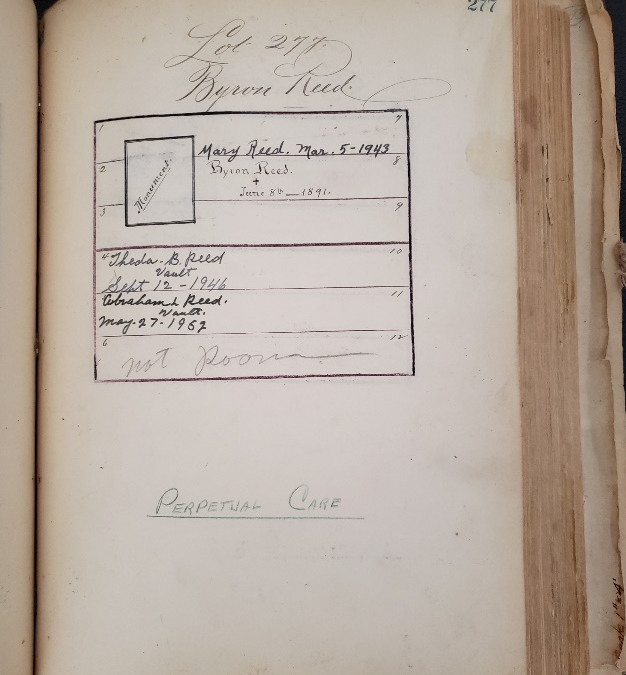 277
Lot 277
Byron Reed.
1 7
Mary Reed. Mar. 5-1943
2 8
Monument.
Byron Reed.
+
June 8th — 1891.
3 9
4 Theda. B. Reed 10
Vault
Sept 12-1946
Abraham L Reed. 11
Vault.
May-27-1952
6 12
not Room
PERPETUAL CARE